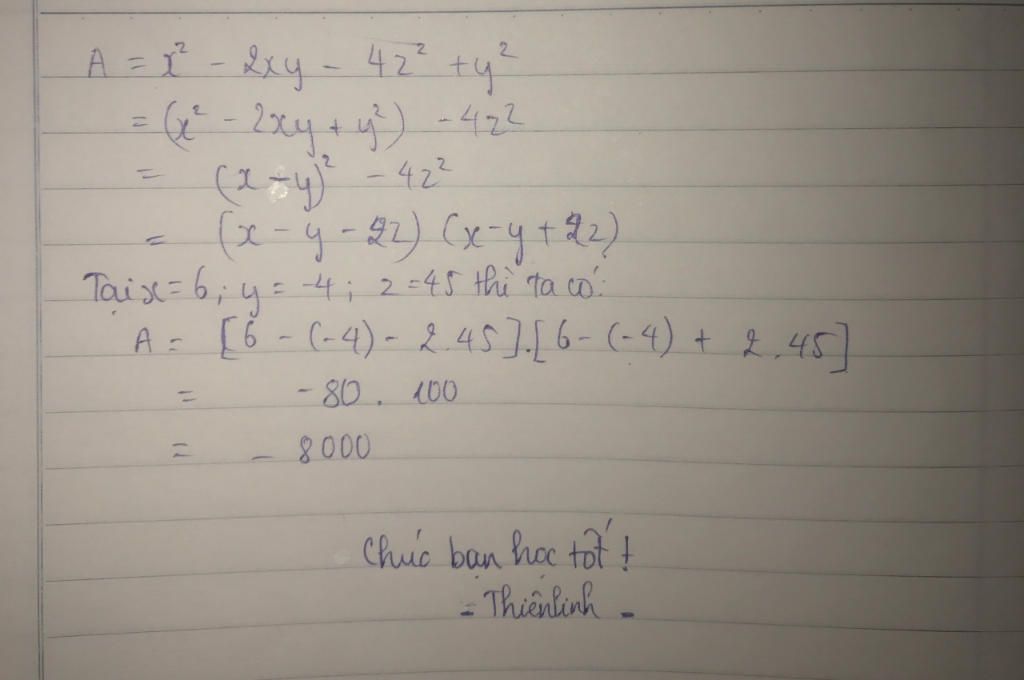 A = x² - 2xy - 4z² + y²
= (x² - 2xy + y²) - 4z²
= (x - y)² - 4z²
= (x - y - 2z) (x - y + 2z)
Tại x = 6 ; y = -4 ; z = 45 thì ta có:
A = [6 - (-4) - 2.45].[6 - (-4) + 2.45]
= -80 . 100
= - 8000
Chúc bạn học tốt !
- Thiênlinh -